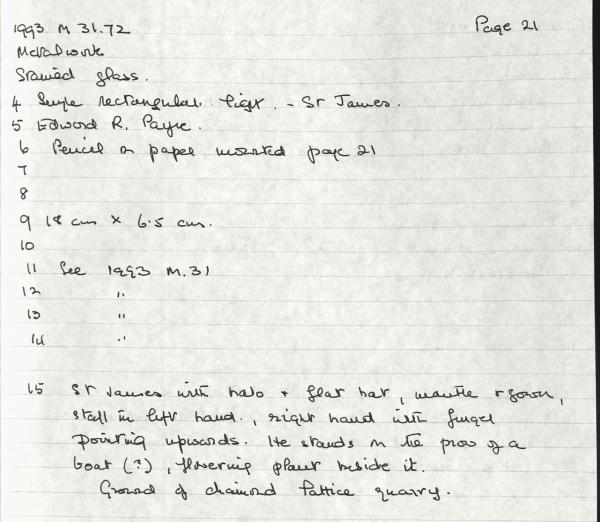 1993 M 31.72 Page 21
Metalwork
Stained glass.
4 Single rectangular light. - St James.
5 Edward R. Payne.
6 Pencil on paper inserted page 21
7
8
9 18 cm x 6.5 cm.
10
11 See 1993 M.31
12 "
13 "
14 "
15 St James with halo + flat hat, mantle + gown,
staff in left hand., right hand with finger
pointing upwards. He stands on the prow of a
boat (?), flowering plant beside it.
Ground of diamond lattice quarry.